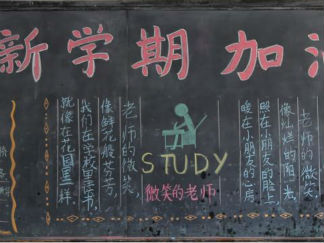 新学期加油
老师的微笑，
像灿烂的阳光，
照在小朋友的脸上，
暖在小朋友的心房，
STUDY
微笑的老师
老师的微笑，
像鲜花般芬芳，
我们在学校里读书，
就像在花园里一样，